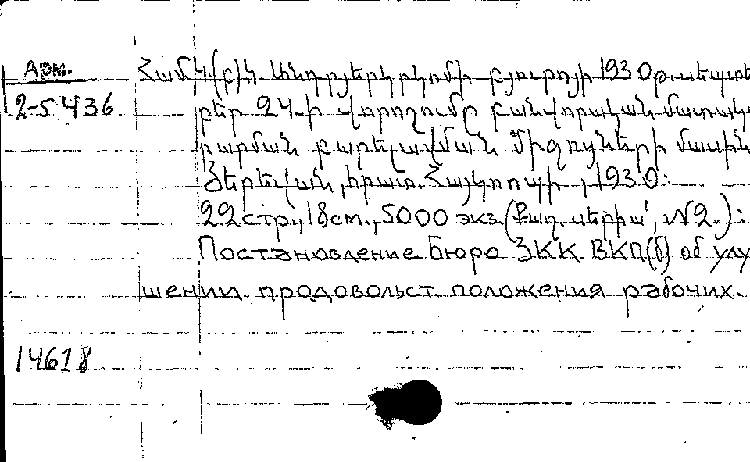 Арм.
2-5436
ՀամԿ(բ)Կ Անդրյերկրկոմի բյուրոյի 1930թ. սեպտեմ
բեր 24-ի վորոշումը բանվորական մատակա
րարման բարելավման միջոցների մասին
Յերեվան, հրատ. Հայկոոպի, 1930։
22 стр., 18 см., 5000 экз. (Քաղ. սերիա՛, №2.)։
Постановление бюро ЗКК ВКП(б) об улу
шении продовольст. положения рабочих.
14618